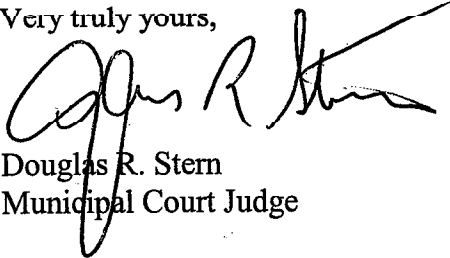 Very truly yours,
Douglas R. Stern
Douglas R. Stern
Municipal Court Judge